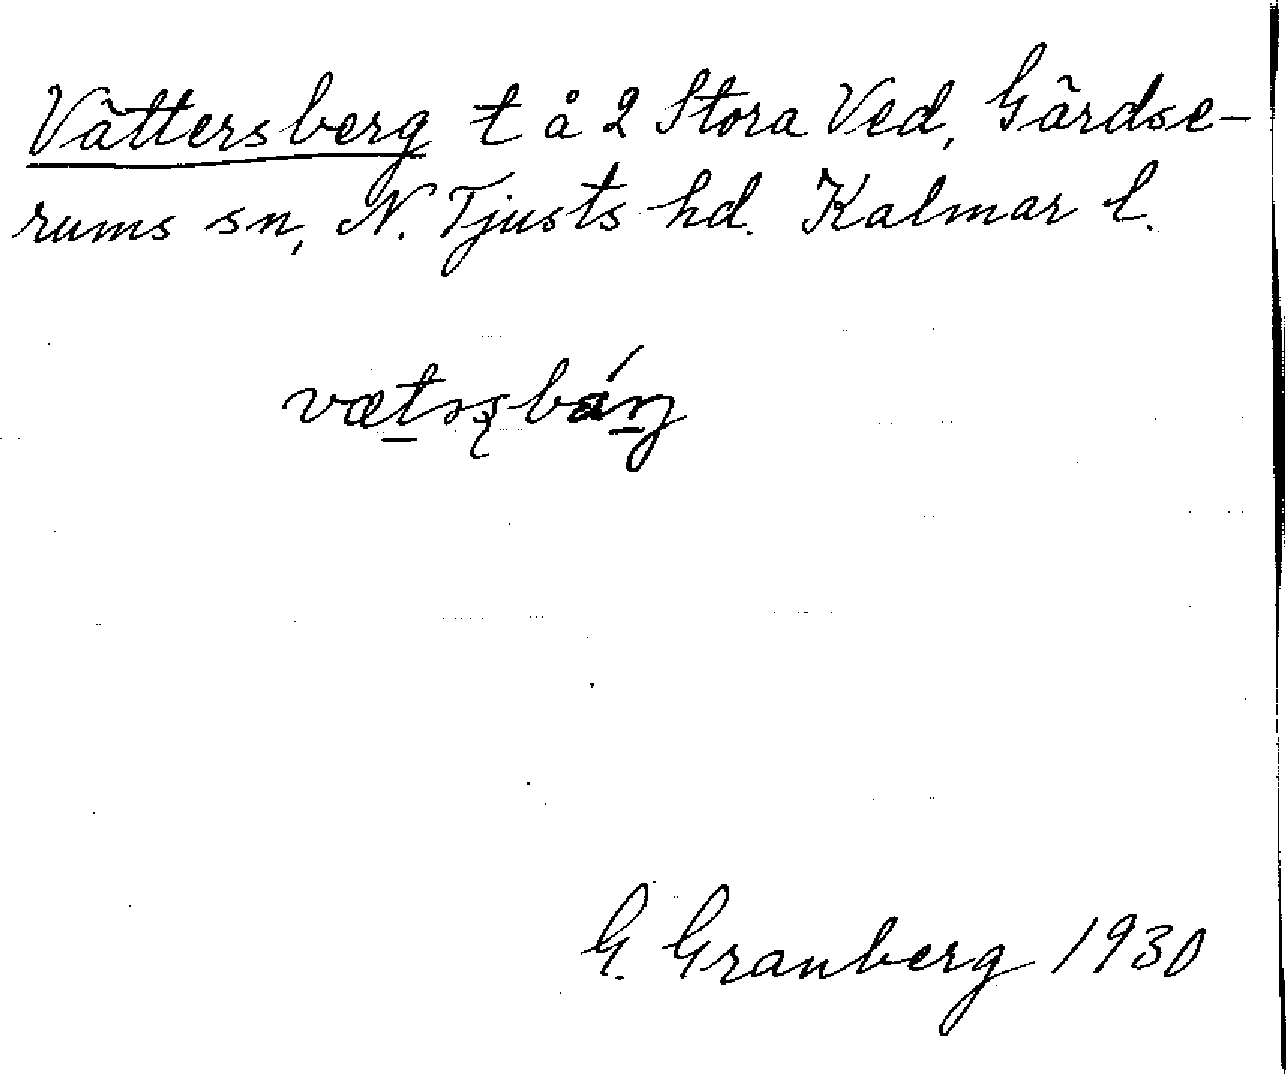 Vättersberg t å 2 Stora Ved, Gärdse-
rums sn, N. Tjusts hd. Kalmar l.
G. Granberg 1930